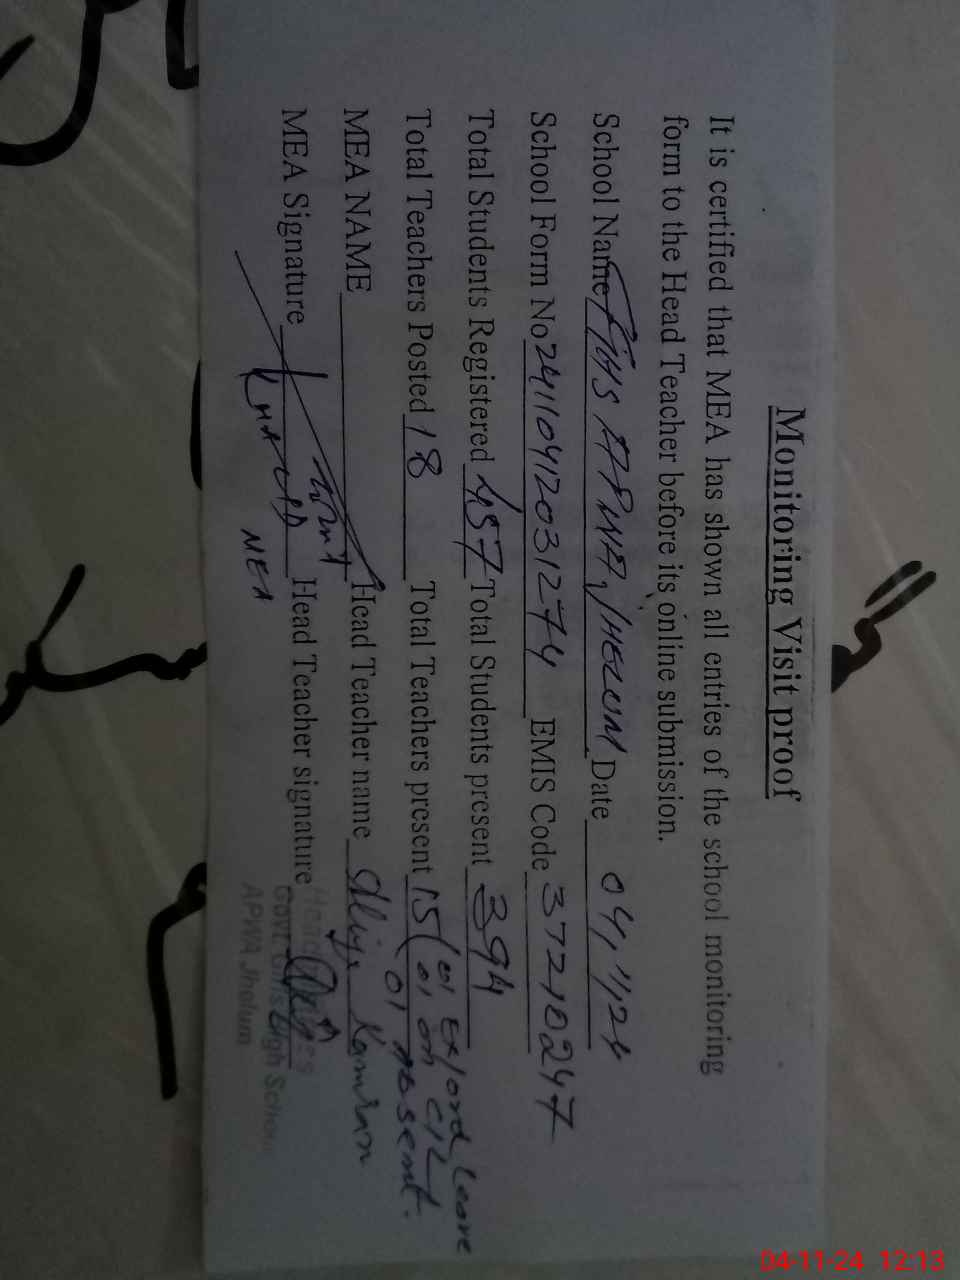 Monitoring Visit proof
It is certified that MEA has shown all entries of the school monitoring
form to the Head Teacher before its online submission.
School Name GGHS APWA, JHELUM Date 04/11/24
School Form No 241104120312744 EMIS Code 37210247
Total Students Registered 457 Total Students present 394
Total Teachers Posted 18 Total Teachers present 15 (01 Ex/ord Leave
01 on C/L
01 Absent.
MEA NAME Head Teacher name Kamran
MEA Signature Head Teacher signature
MEA
Govt. Girls High School
APWA Jhelum
04-11-24 12:13